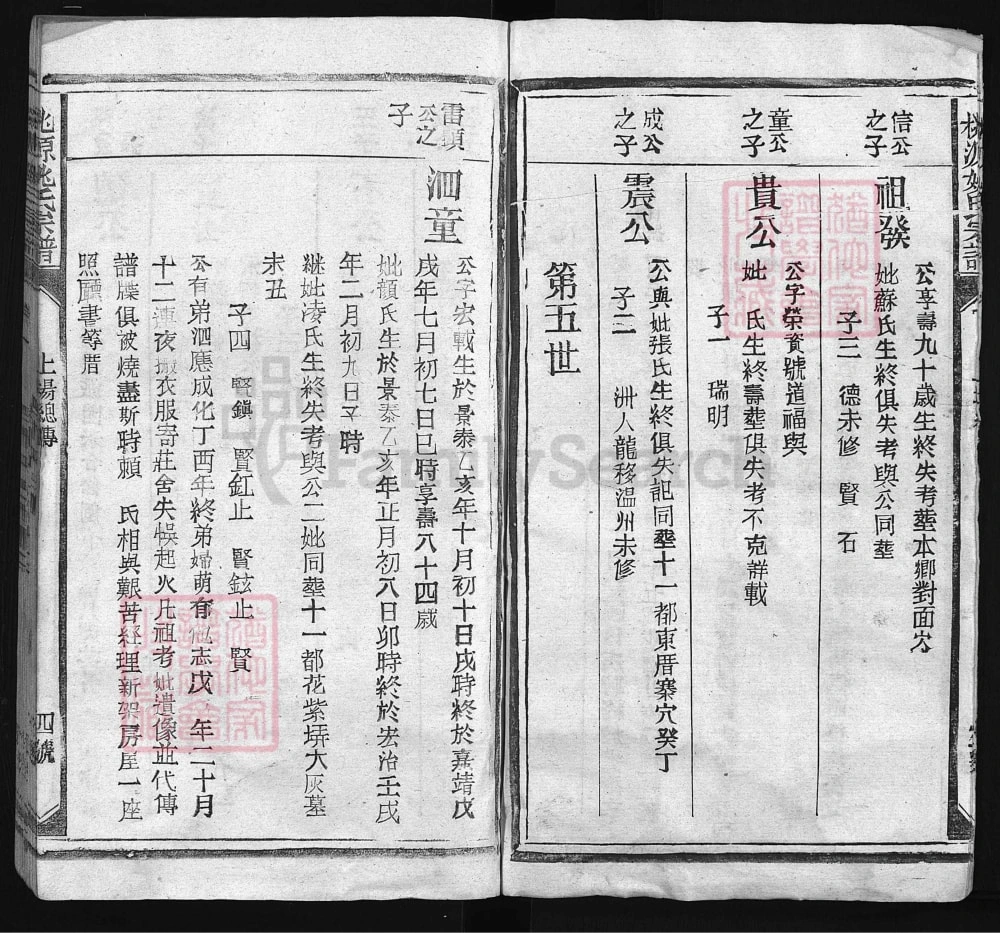 信公
之子
祖發
公享壽九十歲生終失考塟本鄉對面穴
妣蘇氏生終俱失考與公同塟
子三　德未修　賢　石
童公
之子
貴公
公字榮資號道福與
妣　氏生終壽塟俱失考不克詳載
子一　瑞明
成公
之子
震公
公與妣張氏生終俱失記同塟十一都東厝寨穴癸丁
子二　洲人龍移温州未修
第五世
雷填
公之
子
泗童
公字宏載生於景泰乙亥年十月初十日戌時終於嘉靖戊
戌年七月初七日巳時享壽八十四歲
妣顏氏生於景泰乙亥年正月初八日卯時終於宏治壬戌
年二月初九日子時
継妣凌氏生終失考與公二妣同塟十一都花紫垪大灰墓
未丑
子四　賢鎮　賢釭止　賢鉉止　賢
公有弟泗應成化丁酉年終弟婦萌有他志戊　年二十月
十二連夜搬衣服寄莊舍失悞起火凡祖考妣遺像並代傳
譜牒俱被燒盡斯時頼　氏相與艱苦経理新架房屋一座
照廳書等厝
桃源姚氏宗譜
上場總傳
四號
FamilySearch